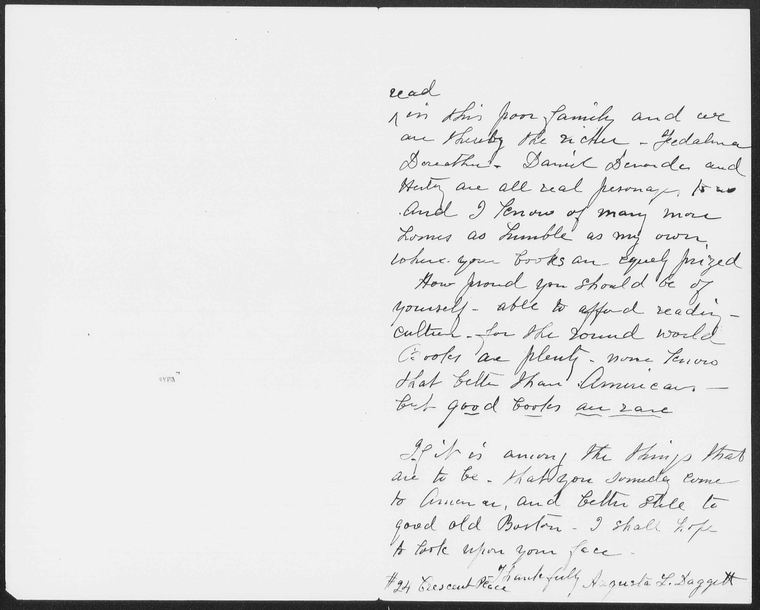 read
^ in this poor family and we
are thereby the richer - Fedalma
Dorothea - Daniel Deronda and
Hetty are all real personages, to us
And I know of many more
homes as humble as my own
where your books are equally prized
How proud you should be of
yourself - able to afford reading -
culture - for the round world
Books are plenty - none knows
that better than Americans -
but good books are rare
If it is among the things that
are to be - that you someday come
to America, and better still to
good old Boston - I shall hope
to look upon your face -
Thankfully Augusta L. Daggett
#24 Crescent Place